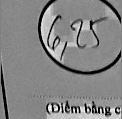 6,25
(Điểm bằng c